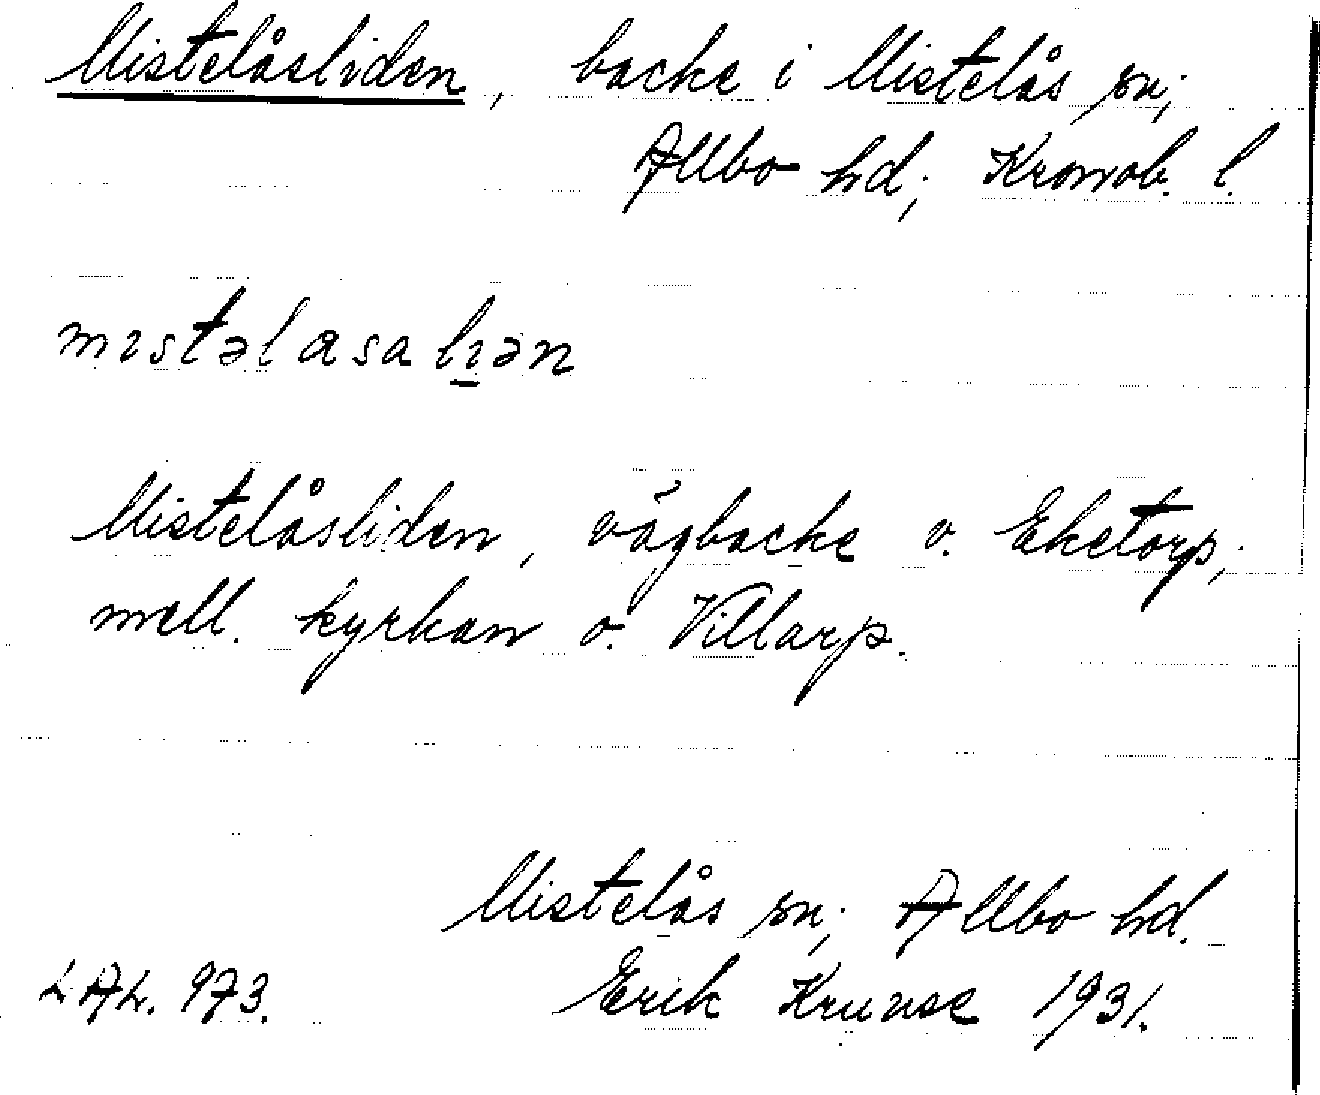 Mistelåsliden, backe i Mistelås sn;
Allbo hd; Kronob. l.
mıstəlasalı̠ən
Mistelåsliden, vägbacke v. Eketorp;
mell. kyrkan o. Villarp.
Mistelås sn; Allbo hd.
LAL. 973. Erik Kruuse 1931.